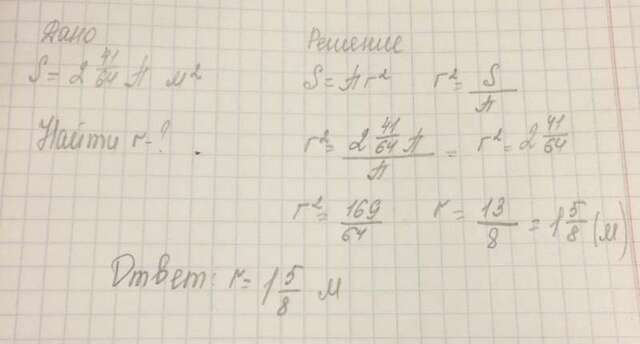 Дано
S = 2 41/64 π м²
Найти r - ?
Решение
S = πr² r² = S/π
r² = 2 41/64 π / π = r² = 2 41/64
r² = 169/64 r = 13/8 = 1 5/8 (м)
Ответ: r = 1 5/8 м